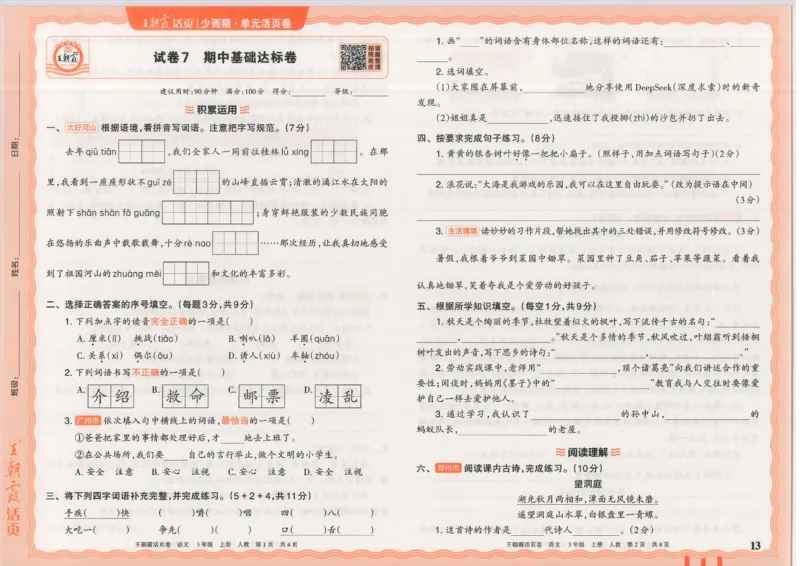 王朝霞 活页 | 少而精·单元活页卷
王朝霞
试卷7 期中基础达标卷
建议用时:90分钟 满分:100分 得分:______ 等级:______
积累运用
一、大好河山 根据语境,看拼音写词语。注意把字写规范。(7分)
去年 qiū tiān ,我们全家人一同前往桂林 lǚ xíng 。在那
里,我看到一座座形状不 guī zé 的山峰直插云霄;清澈的漓江水在太阳的
照射下 shǎn shǎn fā guāng ;身穿鲜艳服装的少数民族同胞
在悠扬的乐曲声中载歌载舞,十分 rè nao ……那次经历,让我真切地感受
到了祖国河山的 zhuàng měi 和文化的丰富多彩。
二、选择正确答案的序号填空。(每题3分,共9分)
1. 下列加点字的读音完全正确的一项是( )
A. 厘米(lǐ) 挑战(tiāo) B. 喇叭(lǎ) 羊圈(quān)
C. 关系(xì) 偶尔(ǒu) D. 诱人(xiù) 车轴(zhóu)
2. 下列词语书写不正确的一项是( )
A. 介绍 B. 救命 C. 邮票 D. 凌乱
3. 广州市 依次填入句中横线上的词语,最恰当的一项是( )
①爸爸把家里的事情都处理好后,才____地去上班了。
②在公共场所,我们要____自己的言行举止,做个文明的小学生。
A. 安全 注意 B. 安心 注视 C. 安心 注意 D. 安全 注视
三、将下列四字词语补充完整,并完成练习。(5+2+4,共11分)
手疾( )快 ( )嚼( )咽 四( )八( )
大吃一( ) 争先( )( ) 口( )舌( )
王朝霞活页卷 语文 3年级 上册 人教 第1页 共4页
日期:
姓名:
班级:
王朝霞活页
1. 画“____”的词语含有身体部位名称,这样的词语还有:________、
________。
2. 选词填空。
(1)大家围在屏幕前,________地分享使用DeepSeek(深度求索)时的新奇
发现。
(2)姐姐真是________,迅速接住了我投掷(zhì)的沙包并扔了出去。
四、按要求完成句子练习。(8分)
1. 黄黄的银杏树叶好像一把把小扇子。(照样子,用加点词语写句子)(2分)
2. 浪花说:“大海是我游戏的乐园,我可以在这里自由玩耍。”(改为提示语在中间)
(3分)
3. 生活情境 读妙妙的习作片段,帮她找出其中的三处错误,并用修改符号修改。(3分)
暑假,我根着爷爷到菜园中锄草。菜园里种了豆角、茄子、苹果等蔬菜。看着我
认真地锄草,笑着夸我是个爱劳动的好孩子。
五、根据所学知识填空。(每空1分,共9分)
1. 秋天是个绚丽的季节,杜牧望着似火的枫叶,写下流传千古的名句:“________
________,________。”秋天是个多情的季节,秋风吹过,叶绍翁听到梧桐
树叶发出的声音,写下思乡的诗句:“________,________。”
2. 劳动实践课中,老师用“________,顶个诸葛亮”向我们讲述合作的重
要性;闲谈时,妈妈用《墨子》中的“________”教育我与人交往时要像爱
护自己一样去爱护他人。
3. 通过学习,我认识了________的孙中山,________的
蚂蚁队长,________的老屋。
阅读理解
六、郑州市 阅读课内古诗,完成练习。(10分)
望洞庭
湖光秋月两相和,潭面无风镜未磨。
遥望洞庭山水翠,白银盘里一青螺。
1. 这首诗的作者是______代诗人______。(2分)
王朝霞活页卷 语文 3年级 上册 人教 第2页 共4页
13